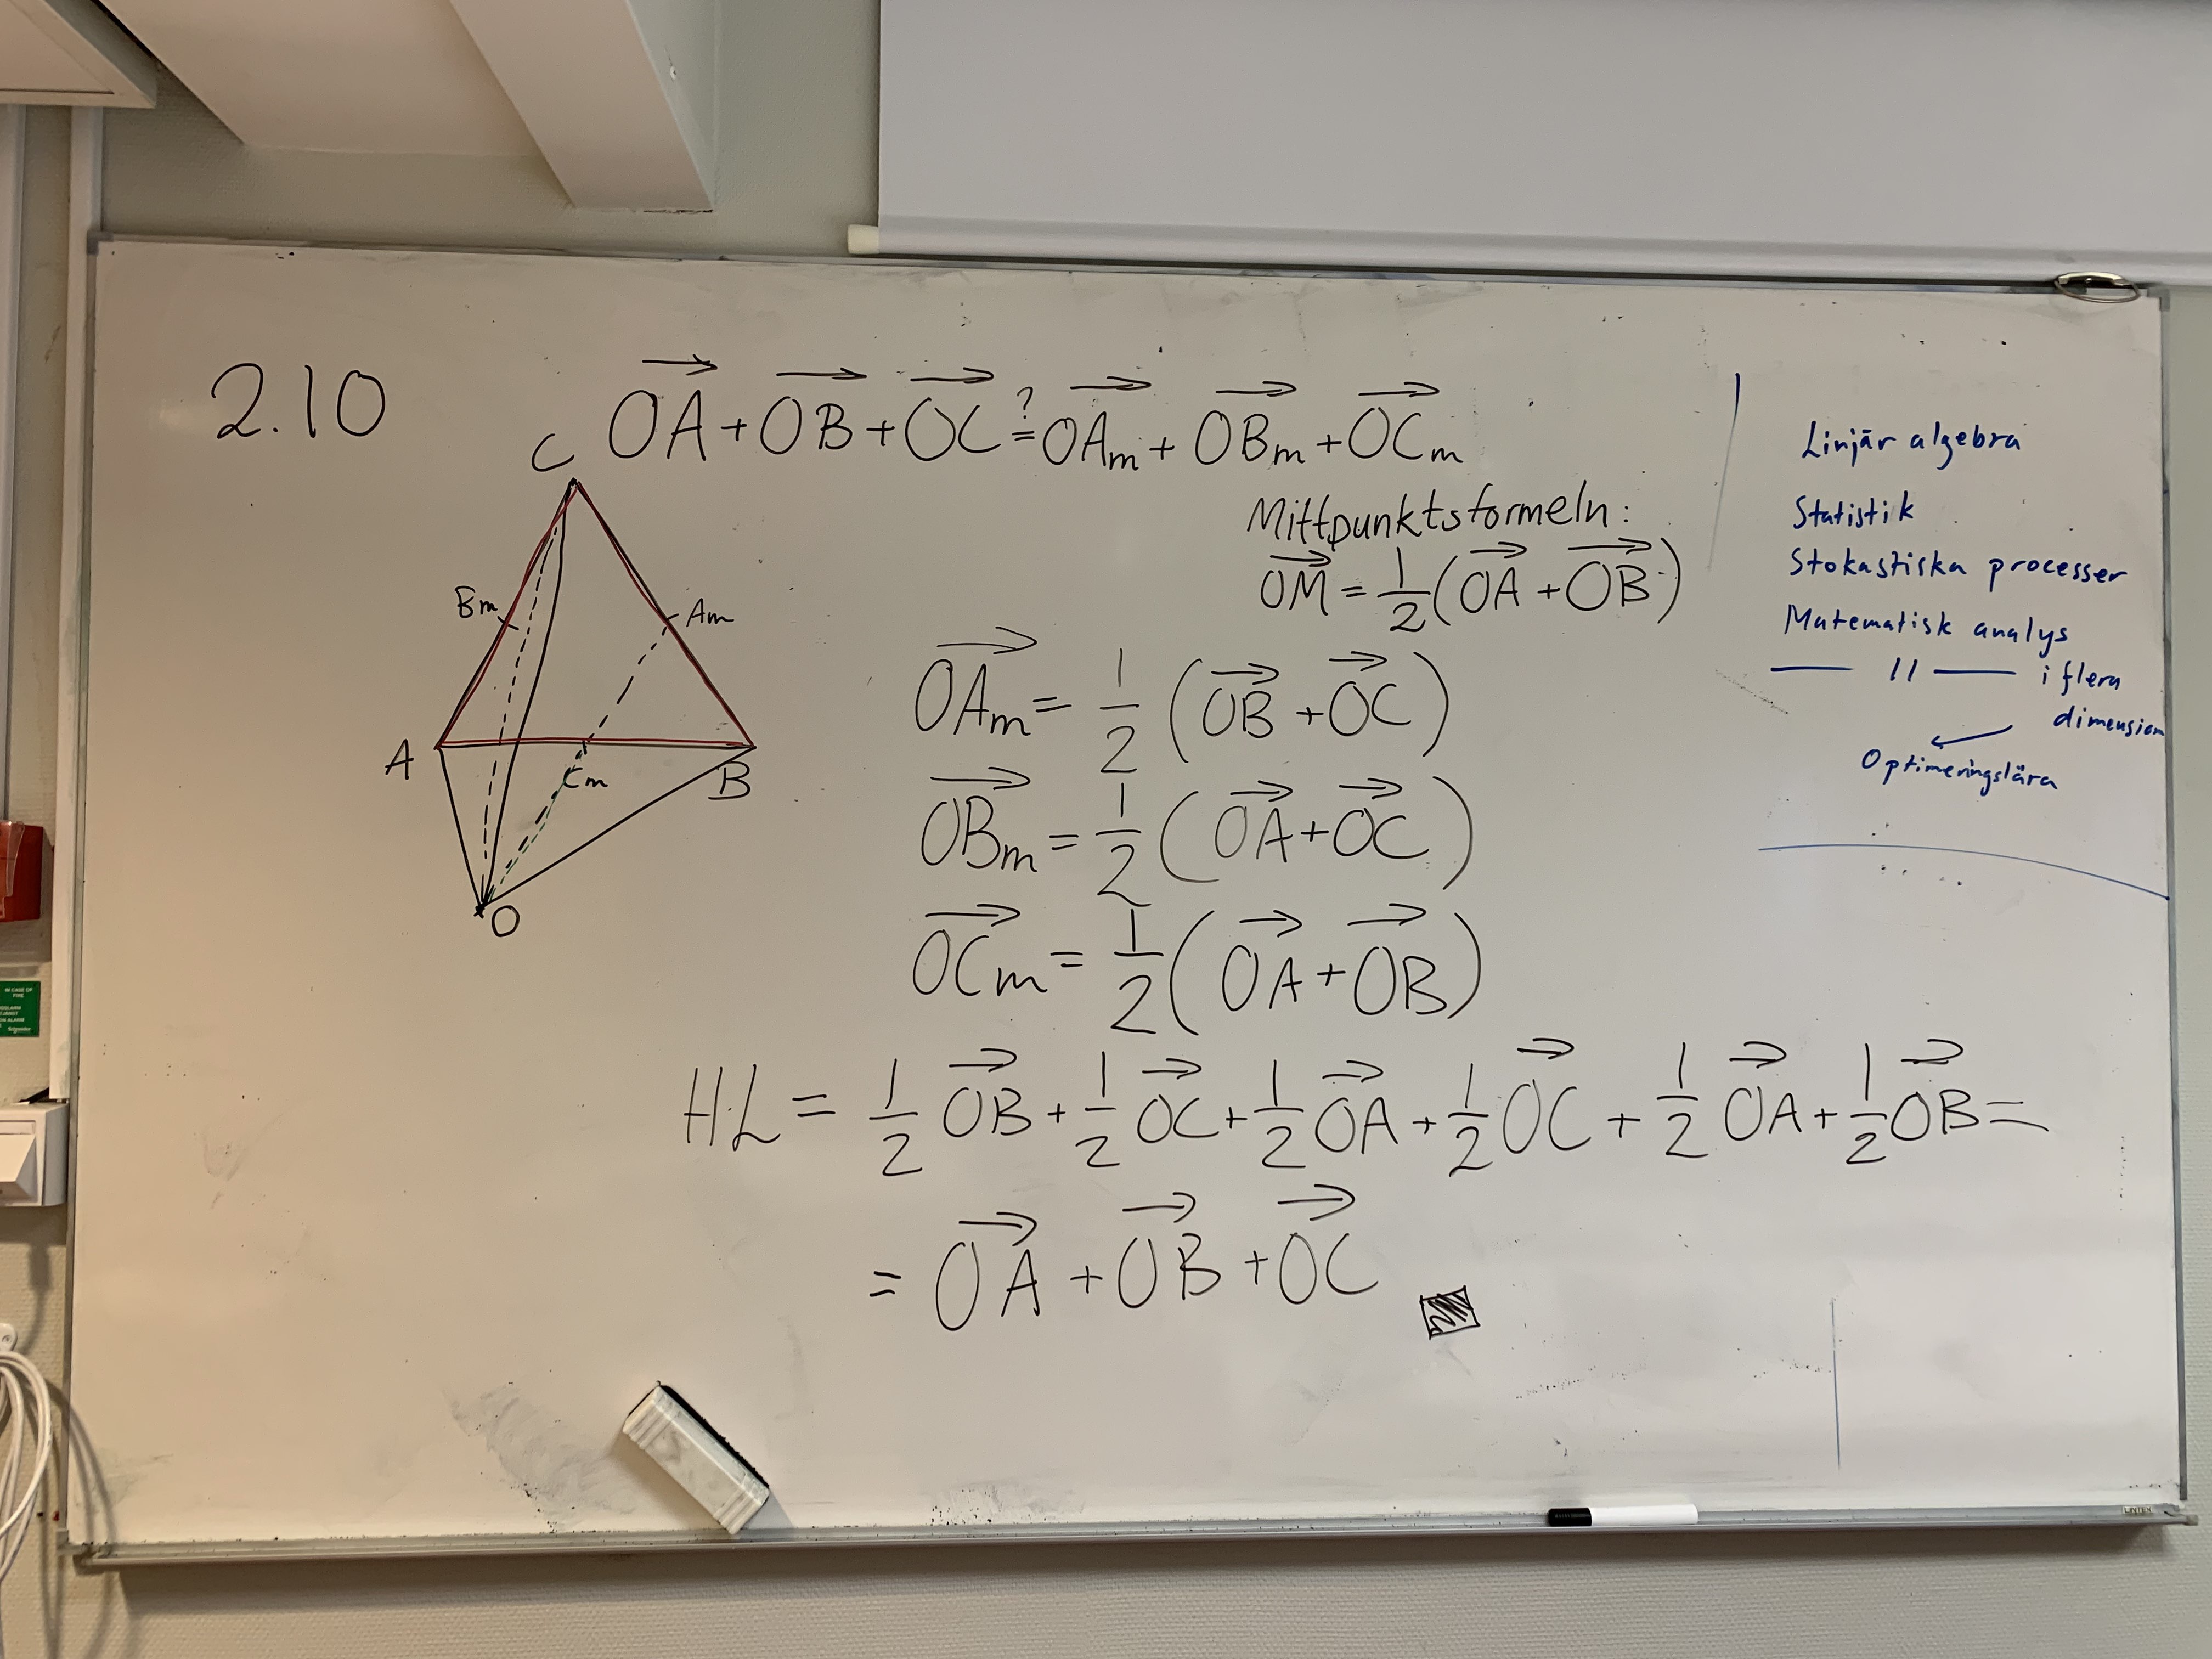 2.10
O⃗A⃗ + O⃗B⃗ + O⃗C⃗ ?= O⃗A⃗m + O⃗B⃗m + O⃗C⃗m
C
Bm
Am
A
Cm
B
O
Mittpunktsformeln:
O⃗M⃗ = 1/2 (O⃗A⃗ + O⃗B⃗)
O⃗A⃗m = 1/2 (O⃗B⃗ + O⃗C⃗)
O⃗B⃗m = 1/2 (O⃗A⃗ + O⃗C⃗)
O⃗C⃗m = 1/2 (O⃗A⃗ + O⃗B⃗)
H.L = 1/2 O⃗B⃗ + 1/2 O⃗C⃗ + 1/2 O⃗A⃗ + 1/2 O⃗C⃗ + 1/2 O⃗A⃗ + 1/2 O⃗B⃗ =
= O⃗A⃗ + O⃗B⃗ + O⃗C⃗
Linjär algebra
Statistik
Stokastiska processer
Matematisk analys
— 11 — i flera
dimension
Optimeringslära
IN CASE OF
FIRE